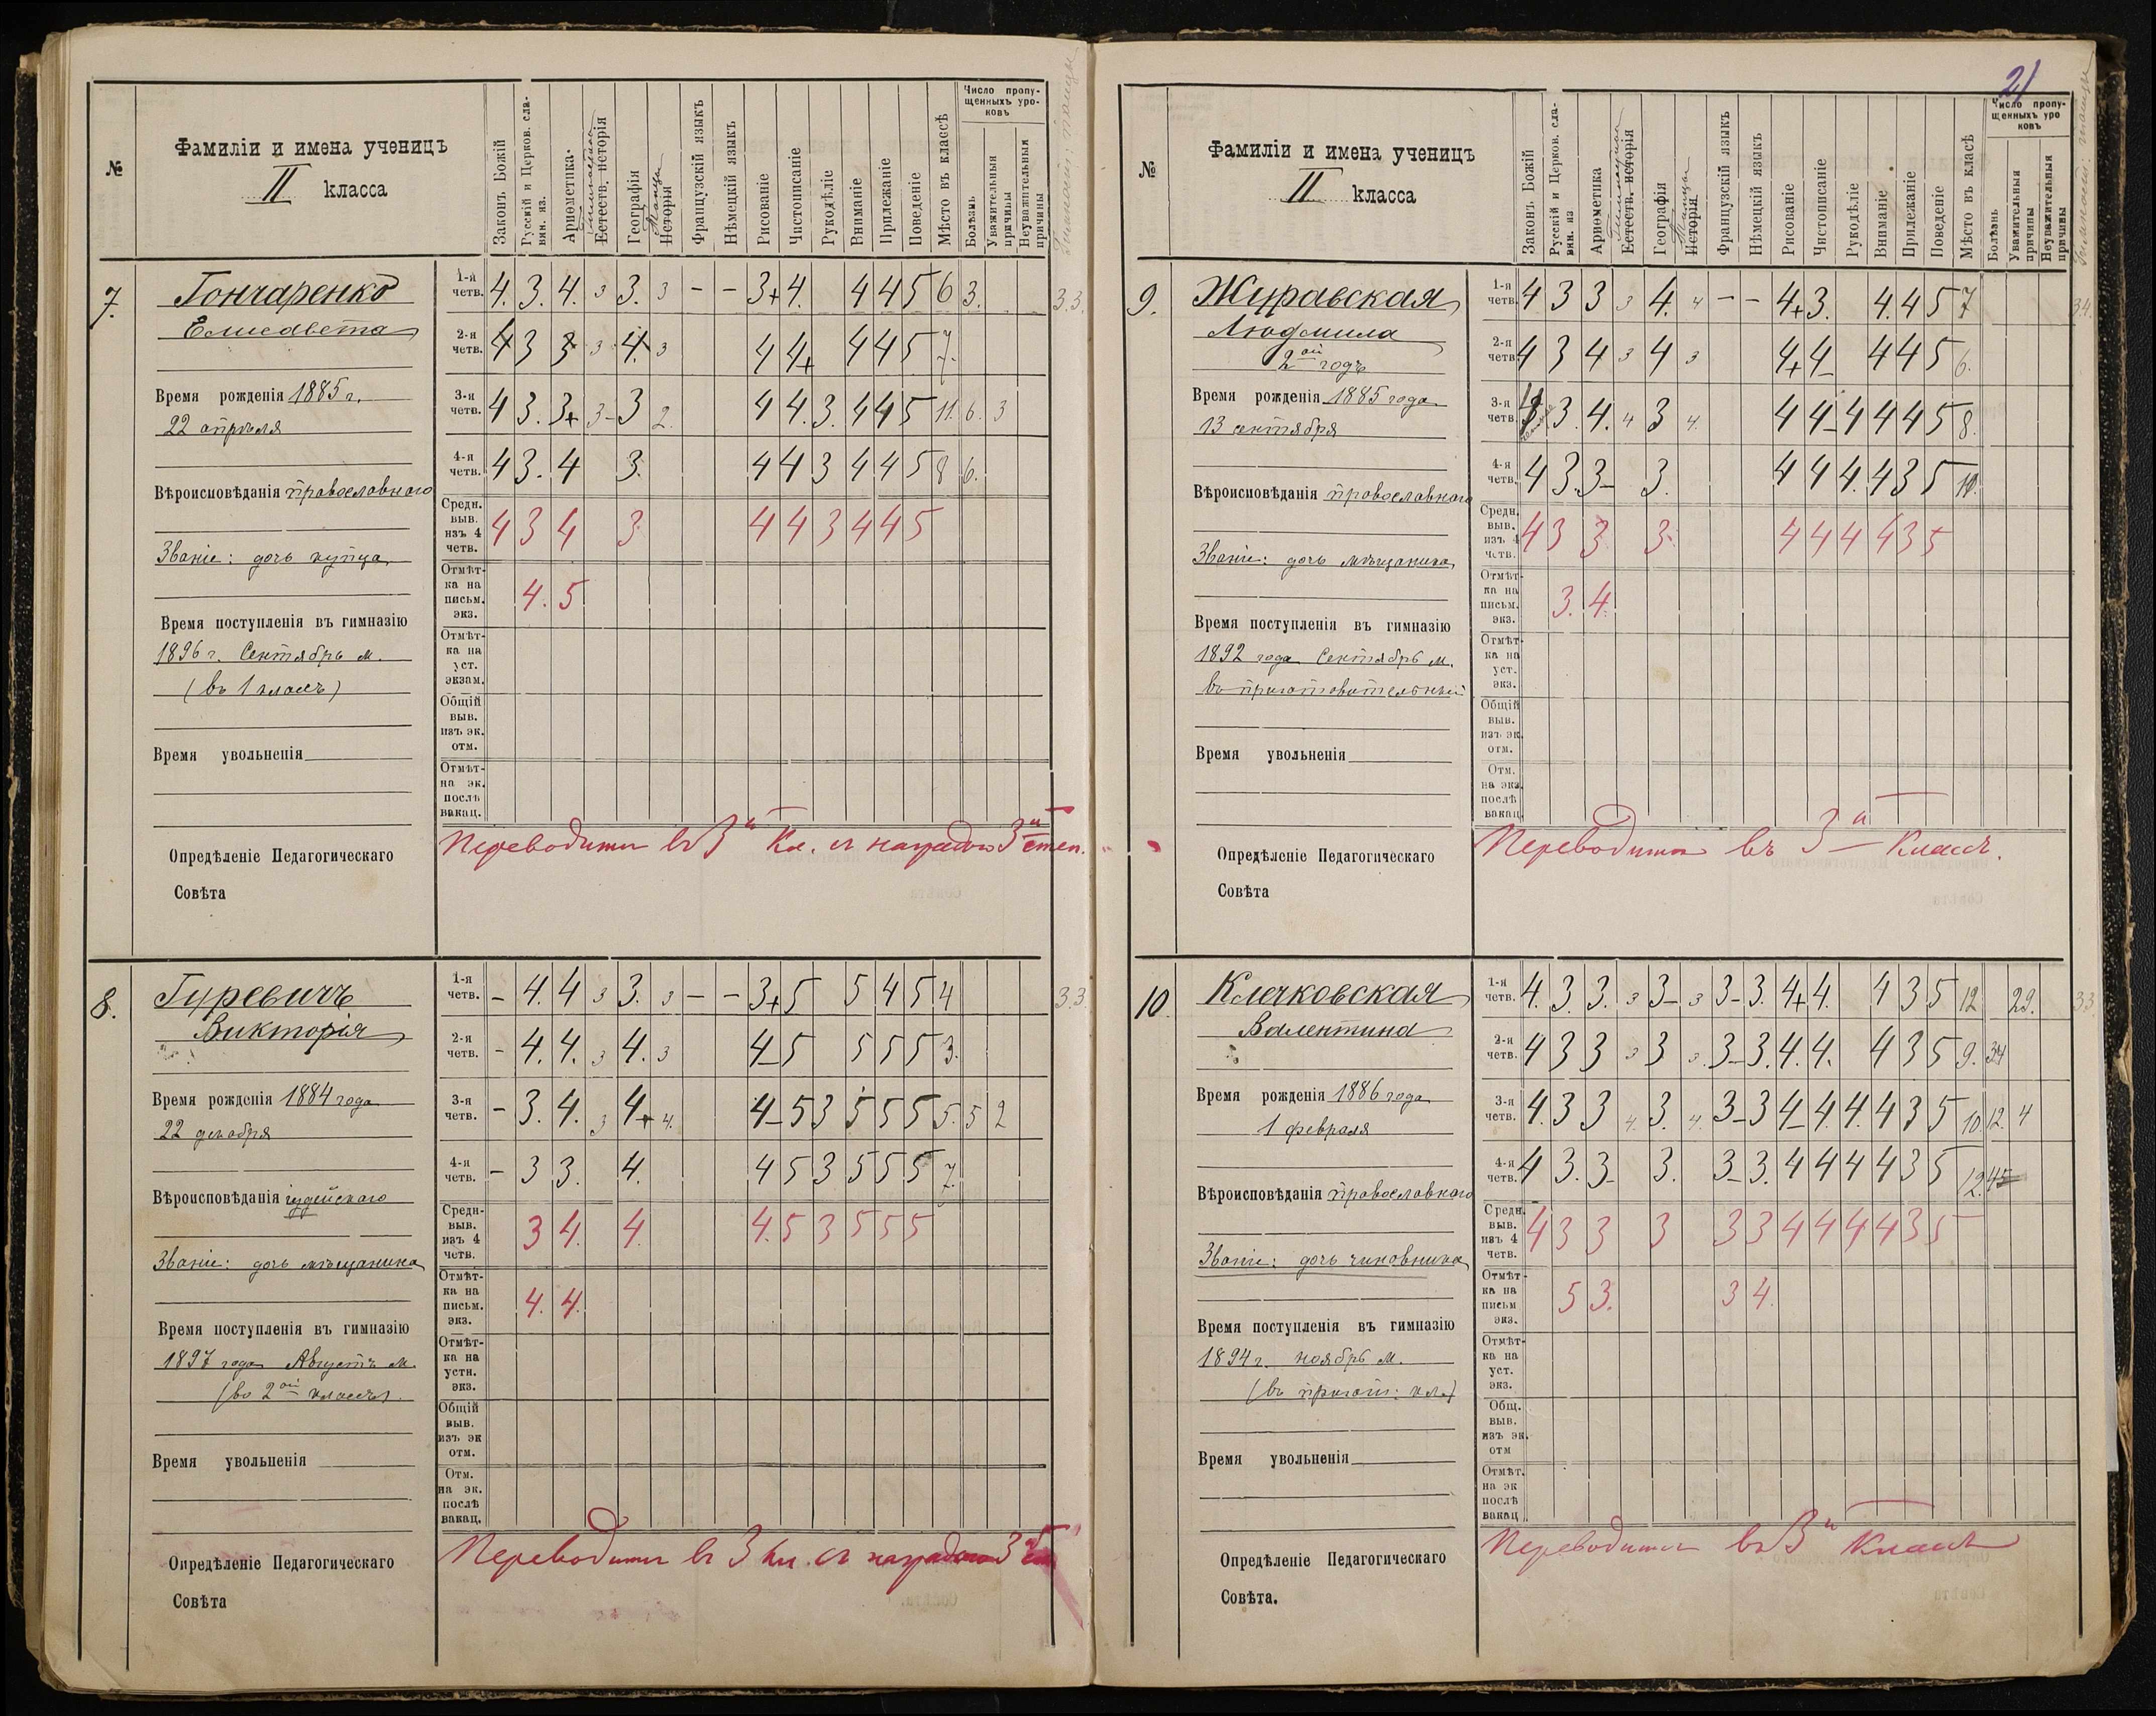 21
№
Фамиліи и имена ученицъ
II класса
Законъ Божій
Русскій и Церков. сла-
вян. яз.
Ариѳметика.
Естеств. исторія
Географія
Танцы
Исторія
Французскій языкъ
Нѣмецкій языкъ
Рисованіе
Чистописаніе
Рукодѣліе
Вниманіе
Прилежаніе
Поведеніе
Мѣсто въ классѣ
Число пропу-
щенныхъ уро-
ковъ
Болѣзнь
Уважительныя
причины
Неуважительныя
причины
7.
Гончаренко
Елисавета
Время рожденія 1885 г.
22 апрѣля
Вѣроисповѣданія православнаго
Званіе: дочь купца
Время поступленія въ гимназію
1896 г. Сентябрь м.
(въ 1 классъ)
Время увольненія
Опредѣленіе Педагогическаго
Совѣта
1-я четв. 4. 3. 4. 3 3. 3 - - 3+ 4. 4 4 5 6 3. 3.3.
2-я четв. 4 3 3 3 4. 3 4 4+ 4 4 5 7.
3-я четв. 4 3. 3+ 3- 3 2. 4 4. 3. 4 4 5 11. 6. 3
4-я четв. 4 3. 4 3. 4 4 3 4 4 5 8 6.
Средн. выв. изъ 4 четв. 4 3 4 3. 4 4 3 4 4 5
Отмѣт-ка на письм. экз. 4. 5
Отмѣт-ка на уст. экзам.
Общій выв. изъ эк. отм.
Отмѣт- на эк. послѣ вакац.
Переводится въ 3й Кл. съ наградою 3й степ.
8.
Гуревичъ
Викторія
Время рожденія 1884 года
22 декабря
Вѣроисповѣданія іудейскаго
Званіе: дочь мѣщанина
Время поступленія въ гимназію
1897 года Августъ м.
(во 2ой классъ).
Время увольненія
Опредѣленіе Педагогическаго
Совѣта
1-я четв. - 4. 4 3 3. 3 - - 3+ 5 5 4 5 4 3.3
2-я четв. - 4. 4. 3 4. 3 4- 5 5 5 5 3.
3-я четв. - 3. 4. 3 4+ 4. 4- 5 3 5 5 5 5. 5 2
4-я четв. - 3 3. 4. 4 5 3 5 5 5 7.
Средн- выв. изъ 4 четв. 3 4. 4. 4. 5 3 5 5 5
Отмѣт-ка на письм. экз. 4. 4.
Отмѣт-ка на устн. экз.
Общій выв. изъ эк отм.
Отм. на эк. послѣ вакац.
Переводится въ 3 кл. съ наградою 3й
№
Фамиліи и имена ученицъ
II класса
Законъ Божій
Русскій и Церков. сла-
вян. яз
Ариѳметика
Естеств. исторія
Географія
Танцы
Исторія
Французскій языкъ
Нѣмецкій языкъ
Рисованіе
Чистописаніе
Рукодѣліе
Вниманіе
Прилежаніе
Поведеніе
Мѣсто въ класѣ
Число пропу-
щенныхъ уро
ковъ
Болѣзнь
Уважительныя
причины
Неуважительныя
причины
9.
Журавская
Людмила
2ой годъ
Время рожденія 1885 года
13 сентября
Вѣроисповѣданія православнаго
Званіе: дочь мѣщанина
Время поступленія въ гимназію
1892 года Сентябрь м.
въ приготовительный
Время увольненія
Опредѣленіе Педагогическаго
Совѣта
1-я четв. 4 3 3 3 4. 4 - - 4+ 3. 4. 4 5 7 34.
2-я четв. 4 3 4 3 4 3 4+ 4- 4 4 5 6.
3-я четв. 3. 4. 4 3 4. 4 4- 4 4 4 5 8.
4-я четв. 4 3. 3- 3. 4 4 4. 4 3 5
Средн. выв. изъ 4 четв. 4 3 3 3. 4 4 4 4 3 5
Отмѣт-ка на письм. экз. 3. 4.
Отмѣт-ка на уст. экз.
Общій выв. изъ эк. отм.
Отм. на экз. послѣ вакац.
Переводится въ 3й Классъ.
10.
Клечковская
Валентина
Время рожденія 1886 года
1 февраля
Вѣроисповѣданія православнаго
Званіе: дочь чиновника
Время поступленія въ гимназію
1894 г. ноябрь м.
(въ пригот: кл.)
Время увольненія
Опредѣленіе Педагогическаго
Совѣта.
1-я четв. 4. 3 3. 3 3- 3 3- 3. 4+ 4. 4 3 5 12 29. 33
2-я четв. 4 3 3 3 3 3. 3- 3. 4. 4. 4 3 5 9. 34
3-я четв. 4. 3 3 4. 3. 4. 3- 3 4- 4. 4. 4 3 5 10. 12. 4
4-я четв. 4 3. 3- 3. 3- 3. 4 4 4 4 3 5 12. 45
Средн. выв. изъ 4 четв. 4 3 3 3 3 3 4 4 4 4 3 5
Отмѣт-ка на письм экз. 5 3. 3 4.
Отмѣт-ка на уст. экз.
Общ. выв. изъ эк. отм
Отмѣт. на эк послѣ вакац
Переводится въ 3й Классъ